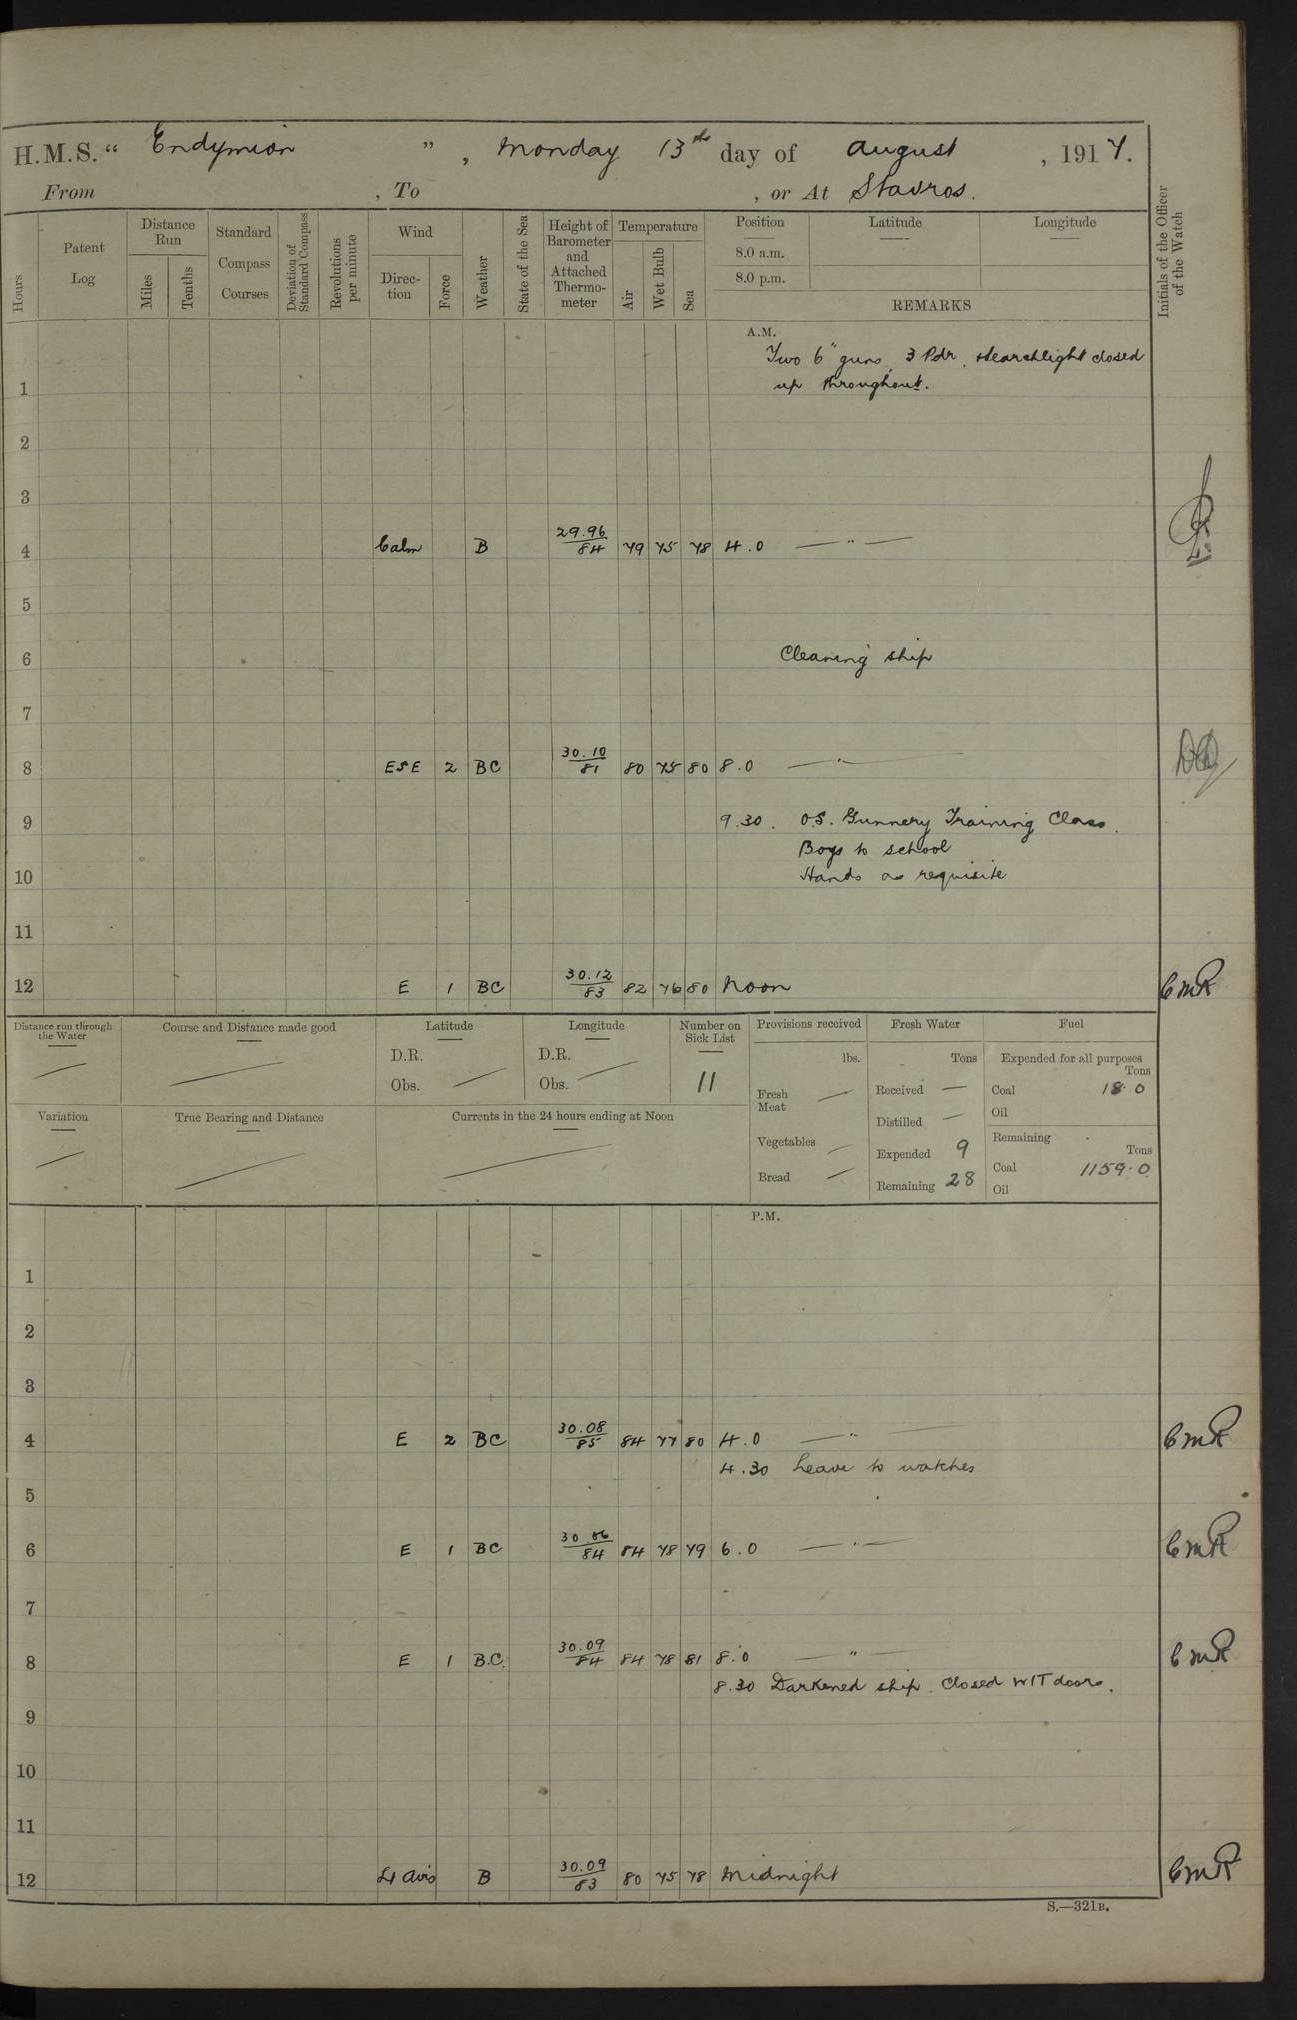 H.M.S. “ Endymion ” , Monday 13th day of August , 1917.
From , To , or At Stavros.
Hours
Patent Log
Distance Run
Miles
Tenths
Standard Compass Courses
Deviation of Standard Compass
Revolutions per minute
Wind
Direc-tion
Force
Weather
State of the Sea
Height of Barometer and Attached Thermo-meter
Temperature
Air
Wet Bulb
Sea
Position
8.0 a.m.
8.0 p.m.
Latitude
Longitude
REMARKS
Initials of the Officer of the Watch
A.M.
Two 6" guns, 3 Pdr. Searchlight closed
1 up throughout.
2
3
4 Calm B 29.96/84 79 75 78 4.0 — " —
5
6 Cleaning ship
7
8 ESE 2 BC 30.10/81 80 75 80 8.0 — " —
9 9.30. OS. Gunnery Training Class.
Boys to school
10 Hands as requisite
11
12 E 1 BC 30.12/83 82 76 80 Noon CMR
Distance run through the Water
Course and Distance made good
Latitude
D.R.
Obs.
Longitude
D.R.
Obs.
Number on Sick List
11
Provisions received
lbs.
Fresh Meat —
Vegetables —
Bread —
Fresh Water
Tons
Received —
Distilled —
Expended 9
Remaining 28
Fuel
Expended for all purposes
Tons
Coal 18.0
Oil
Remaining
Tons
Coal 1159.0
Oil
Variation
True Bearing and Distance
Currents in the 24 hours ending at Noon
P.M.
1
2
3
4 E 2 BC 30.08/85 84 77 80 4.0 — " — CMR
4.30 Leave to watches
5
6 E 1 BC 30.06/84 84 78 79 6.0 — " — CMR
7
8 E 1 B.C. 30.09/84 84 78 81 8.0 — " — CMR
8.30 Darkened ship. Closed W/T doors.
9
10
11
12 Lt airs B 30.09/83 80 75 78 Midnight CMR
S.—321B.